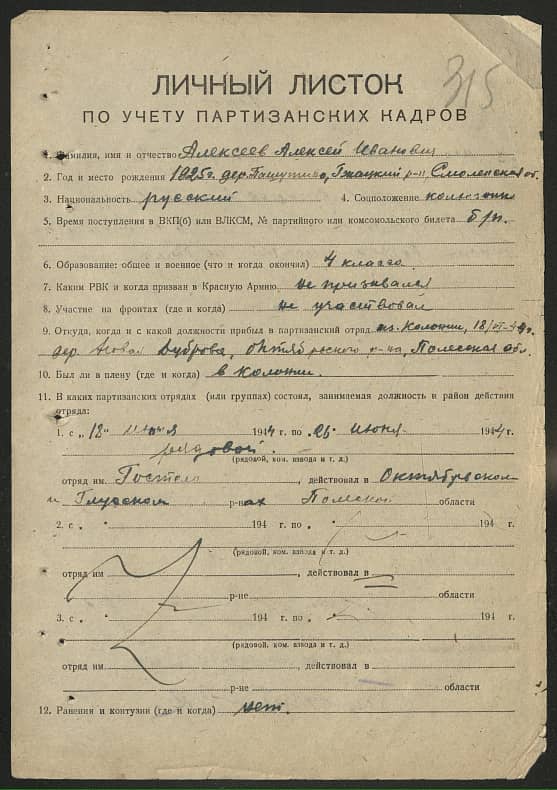 315
ЛИЧНЫЙ ЛИСТОК
ПО УЧЕТУ ПАРТИЗАНСКИХ КАДРОВ
1. Фамилия, имя и отчество Алексеев Алексей Иванович
2. Год и место рождения 1925г. дер. Пашутино, Гжатский р-н, Смоленская об.
3. Национальность русский 4. Соцположение колхозник
5. Время поступления в ВКП(б) или ВЛКСМ, № партийного или комсомольского билета б/п.
6. Образование: общее и военное (что и когда окончил) 4 класса
7. Каким РВК и когда призван в Красную Армию не призывался
8. Участие на фронтах (где и когда) не участвовал
9. Откуда, когда и с какой должности прибыл в партизанский отряд из Колонии, 18/VI-44г.
дер. Новая Дуброва, Октябрьского р-на, Полесская обл.
10. Был ли в плену (где и когда) в Колонии.
11. В каких партизанских отрядах (или группах) состоял, занимаемая должность и район действия
отряда:
1. с „18" июня 1944 г. по „25 июня 1944 г.
рядовой.
(рядовой, ком. взвода и т. д.)
отряд им Гостело , действовал в Октябрьском
и Глусском р-нах Полесской области
2. с „ " 194 г. по „ " 194 г.
(рядовой, ком. взвода и т. д.)
отряд им , действовал в
р-не области
3. с „ " 194 г. по „ " 194 г.
(рядовой, ком. взвода и т. д.)
отряд им , действовал в
р-не области
12. Ранения и контузии (где и когда) нет.